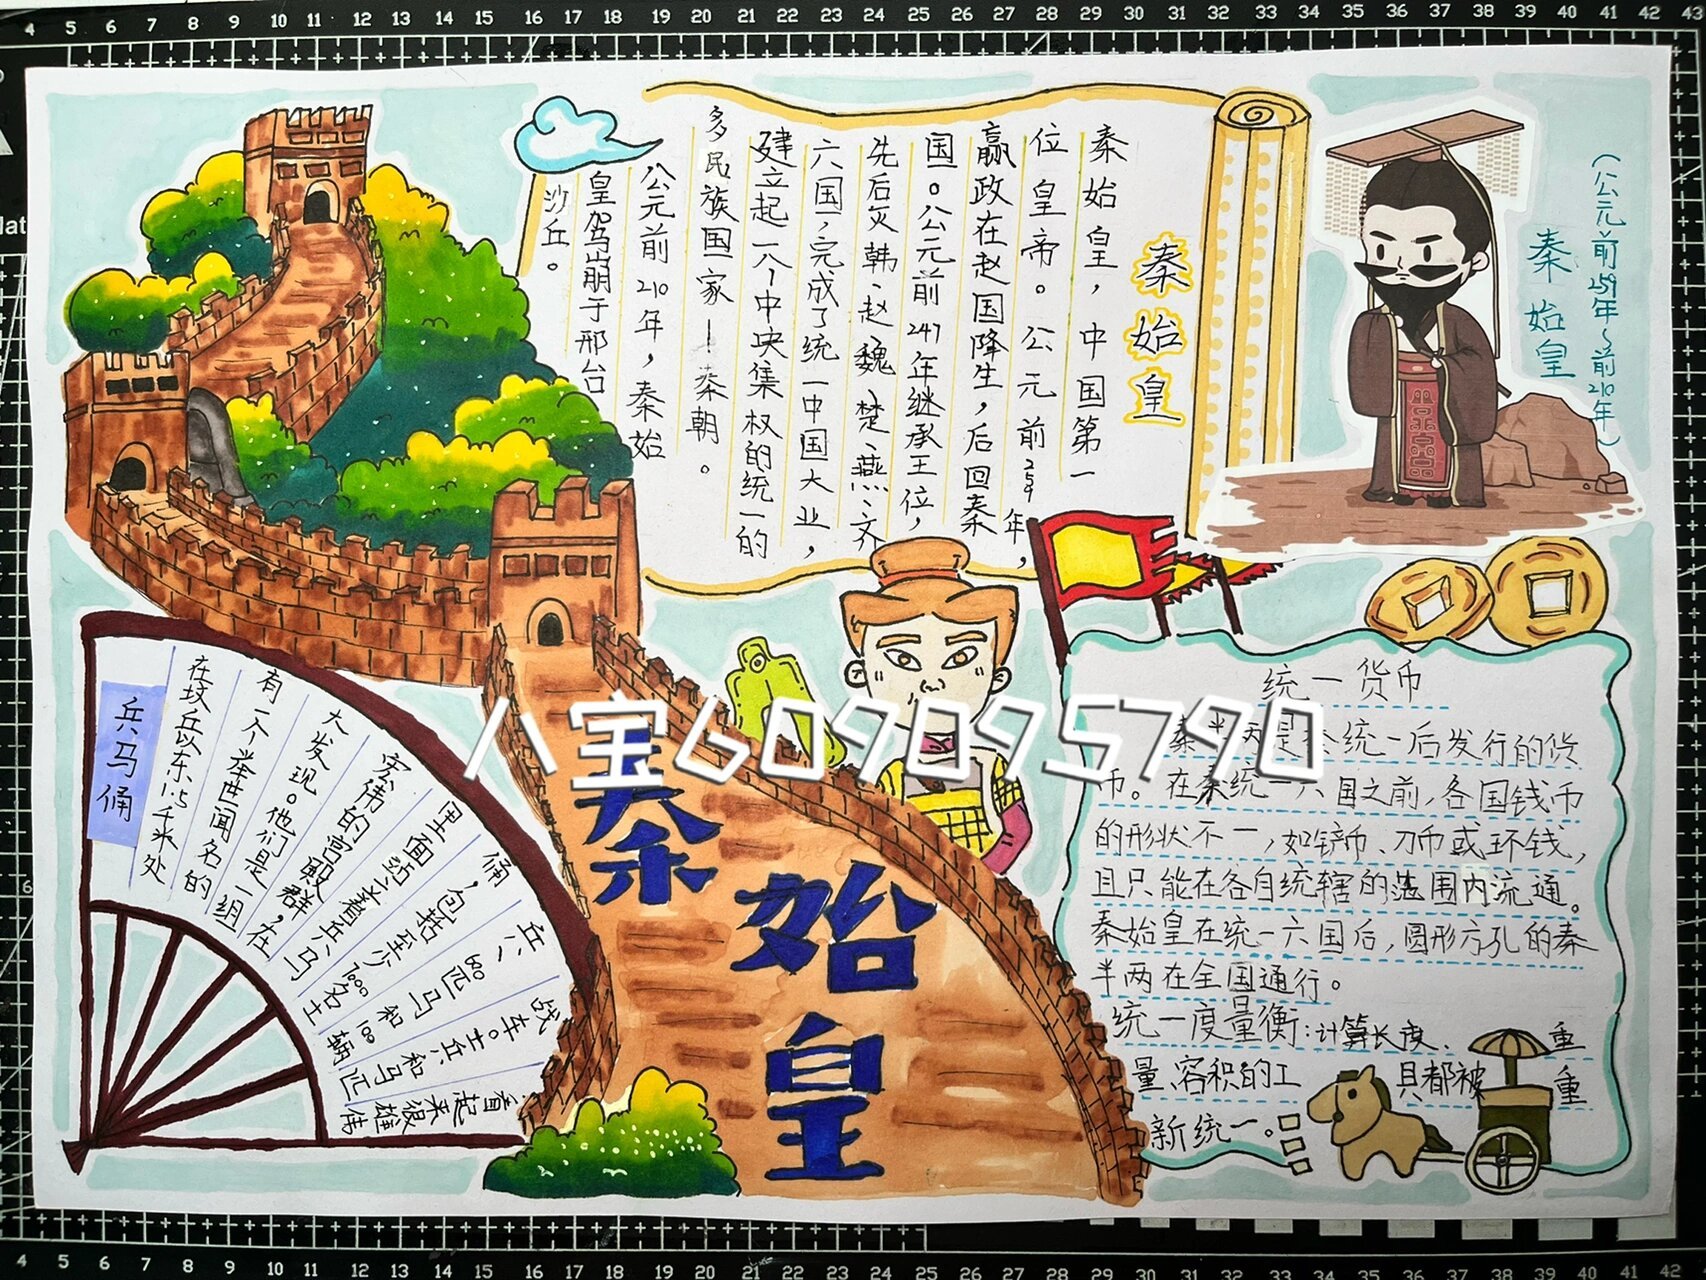 秦始皇
秦始皇，中国第一
位皇帝。公元前259年，
嬴政在赵国降生，后回秦
国。公元前247年继承王位，
先后灭韩、赵、魏、楚、燕、齐
六国，完成了统一中国大业，
建立起一个中央集权的统一的
多民族国家—秦朝。
公元前210年，秦始
皇驾崩于邢台
沙丘。
秦始皇
（公元前259年～前210年）
统一货币
秦半两是秦统一后发行的货
币。在秦统一六国之前，各国钱币
的形状不一，如铲币、刀币或环钱，
且只能在各自统辖的范围内流通。
秦始皇在统一六国后，圆形方孔的秦
半两在全国通行。
统一度量衡：计算长度、重
量、容积的工具都被重
新统一。
兵马俑
在坟丘以东1.5千米处
有一个举世闻名的
大发现。他们是一组
宏伟的宫殿群，在
里面站立着兵马
俑，包括至少7000名士
兵、600匹马和100辆
战车。士兵和马匹
看起来很雄伟
秦始皇
八宝609095790